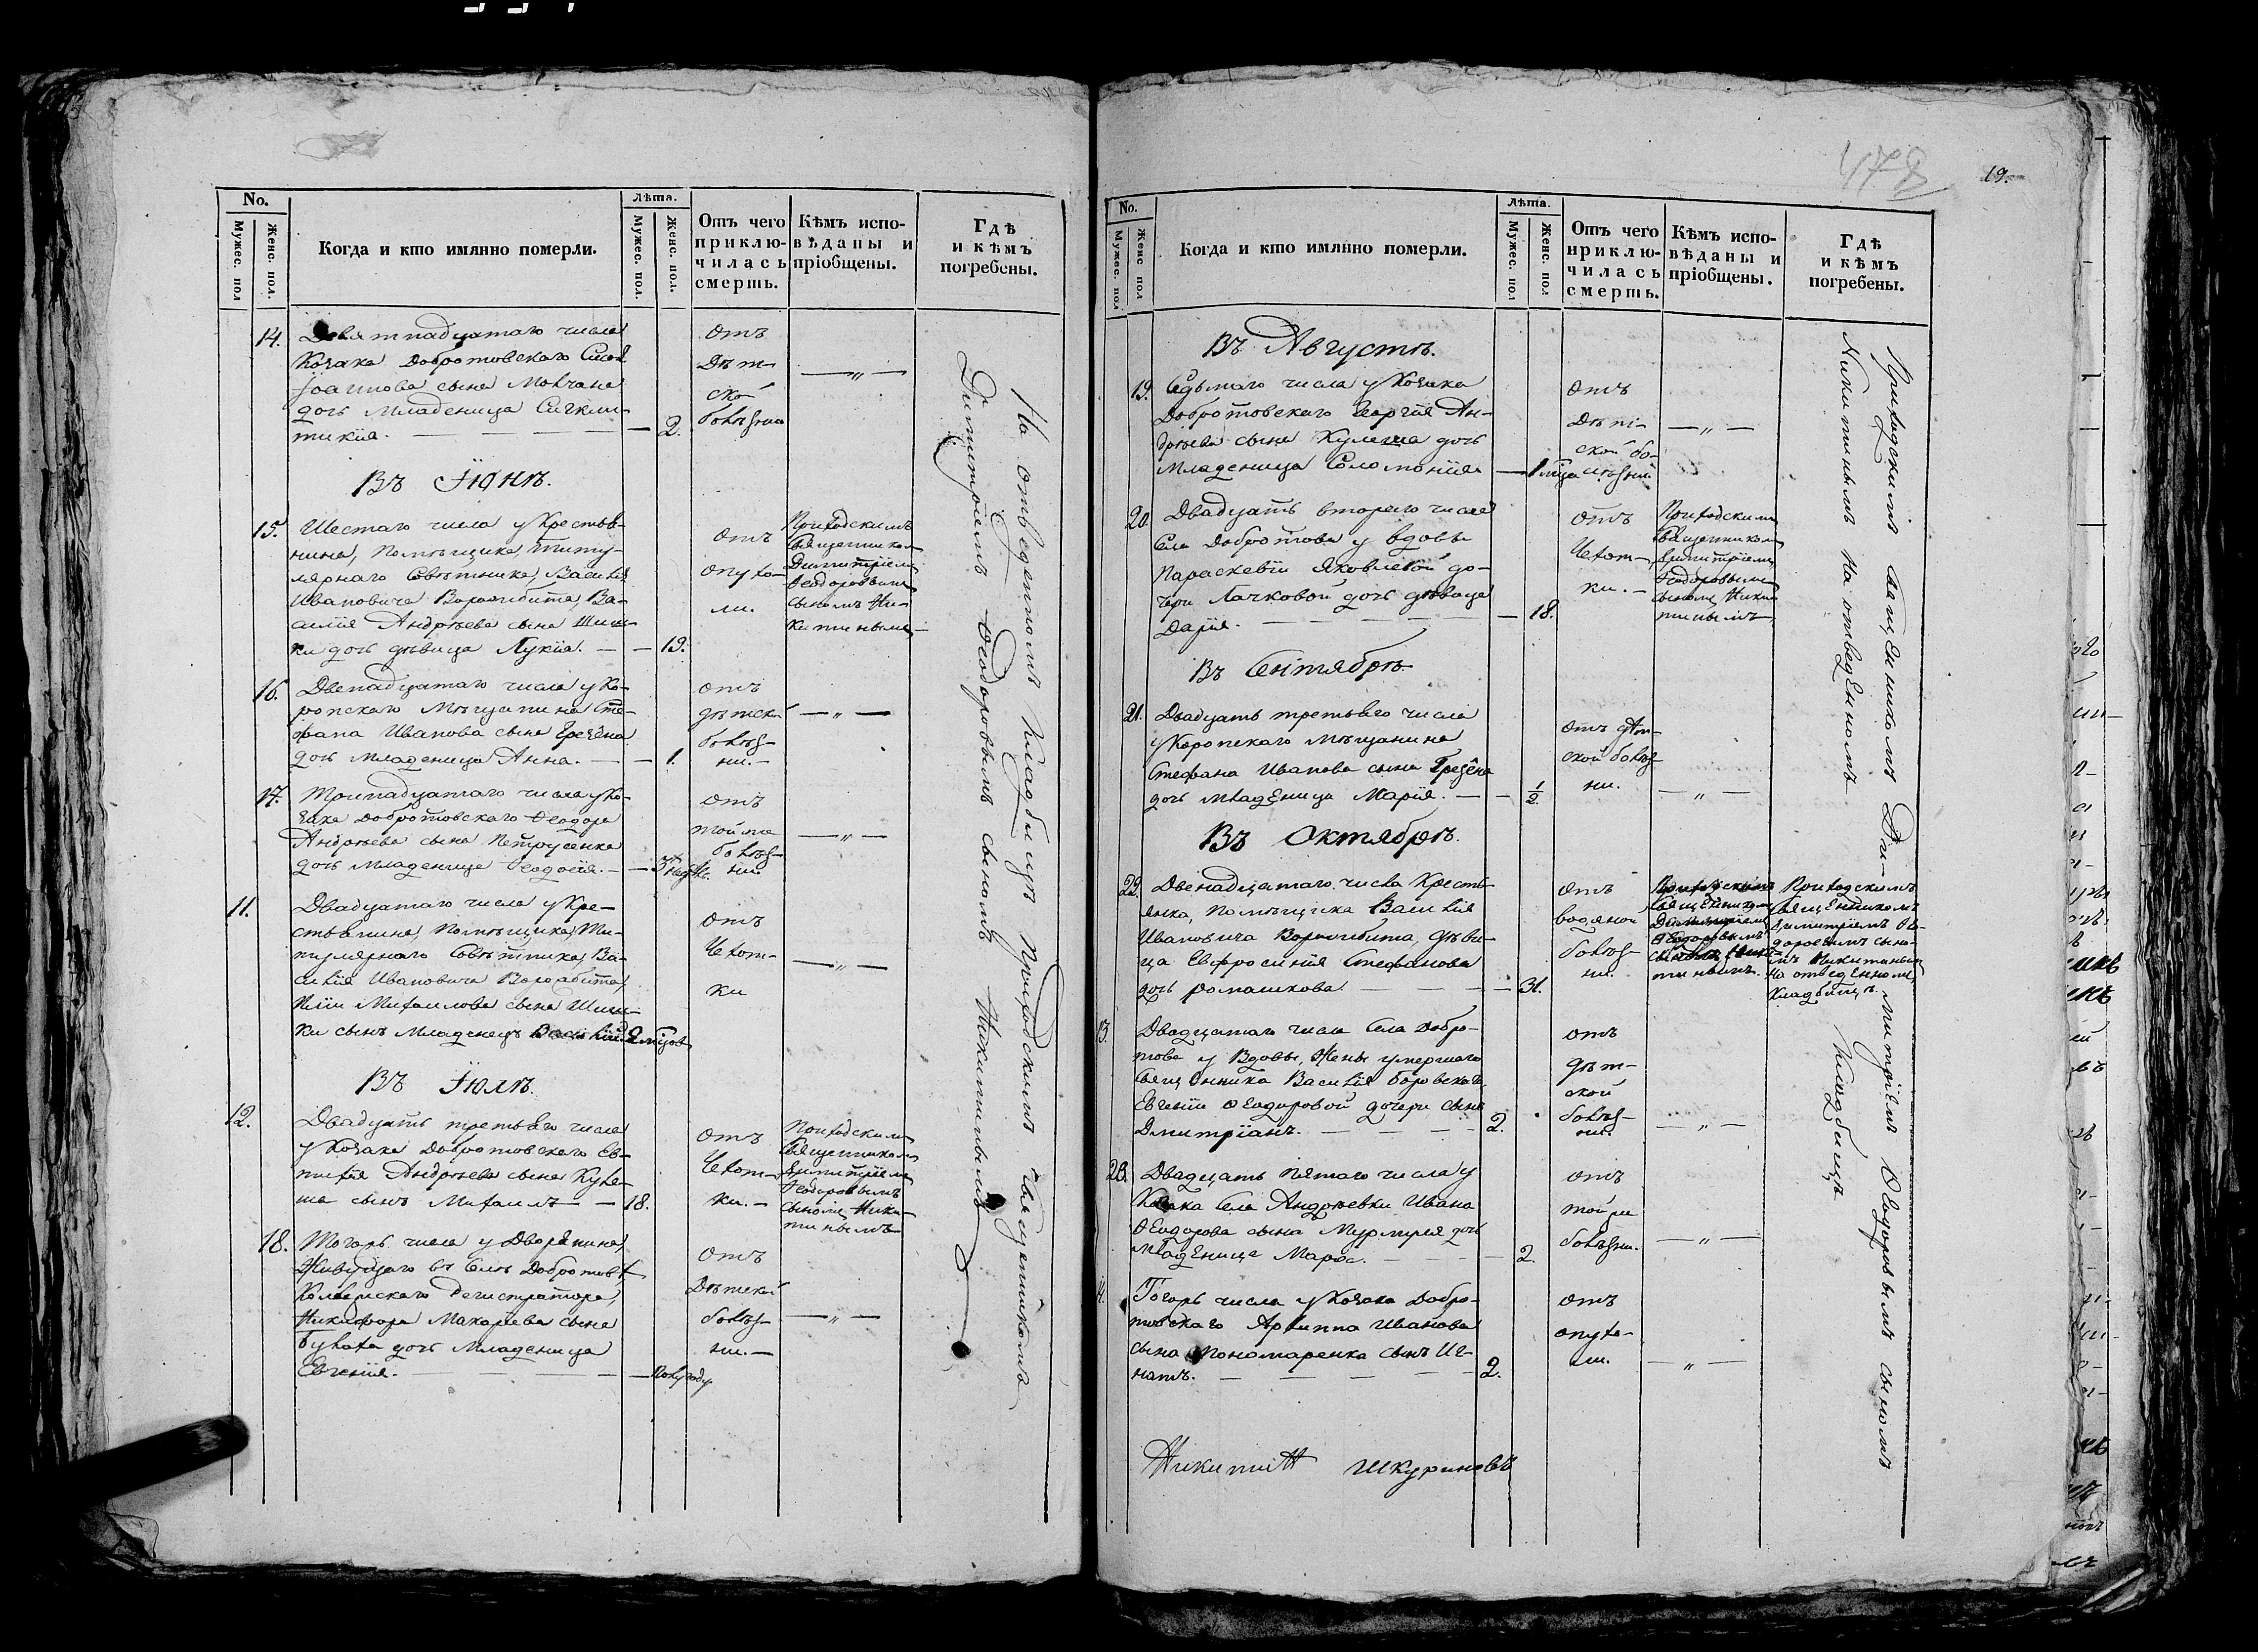 No.
Мужес. пол
Женс. пол.
Когда и кто имянно померли.
Лѣта.
Мужес. пол.
Женс. пол.
Отъ чего
приклю-
чилась
смерть.
Кѣмъ испо-
вѣданы и
пріобщены.
Гдѣ
и кѣмъ
погребены.
14.
Девятнадцатаго числа
Козака Добротовскаго
Іоаннова сына Мовчана
дочь Младеница Сигкли-
тикія. — 2.
отъ
Дѣт
ской
болѣзни
— „ —
Въ Іюнѣ.
15.
Шестаго числа у Крестья-
нина, Помѣщика Титу-
лярнаго Совѣтника, Василія
Ивановича Ворожбита, Ва-
силія Андрѣева сына Шиш-
ки дочь дѣвица Лукія. — 13.
отъ
опухо-
ли.
Приходскимъ
Священником
Димитріемъ
Ѳеодоровымъ
сыномъ Ни-
китинымъ
16.
Двенадцатаго числа у Ко-
ропскаго Мѣщанина Сте-
фана Иванова сына Грезёна
дочь младеница Анна. — 1.
отъ
дѣтской
болѣз-
ни. —
— „ —
17.
Тринадцатаго числа у Ко-
зака Добротовскаго Ѳеодора
Андрѣева сына Петрусенка
дочь младеница Ѳеодосія. — 3 недѣ.
отъ
тойже
болѣз-
ни
— „ —
11.
Двадцатаго числа у Кре-
стьянина, Помѣщика, Ти-
тулярнаго Совѣтника, Ва-
силія Ивановича Ворожбита,
Михаилова сына Шиш-
ки сынъ Младенецъ Василій 2 мѣсяцов
отъ
Чехот-
ки
— „ —
Въ Іюлѣ.
12.
Двадцать третьяго числа
у Козака Добротовскаго Ев-
тихія Андрѣева сына Куле-
ша сынъ Михаилъ — 18.
отъ
Чехот-
ки. —
Приходским
Священником
Димитріемъ
Ѳеодоровымъ
сыномъ Ники-
тинымъ
18.
Тогожъ числа у Дворянина,
Живущаго въ Селѣ Добротовѣ,
Колежскаго Регистратора,
Никифора Макаріева сына
Булаха дочь Младеница
Евгенія. — Полугоду
отъ
Дѣтской
болѣз-
ни. —
— „ —
На отведенномъ Кладбищѣ Приходскимъ Священникомъ
Димитріемъ Ѳеодоровымъ сыномъ Никитинымъ
478
19.
No.
Мужес. пол
Женс пол
Когда и кто имянно померли.
Лѣта.
Мужес. пол
Женс. пол
Отъ чего
приклю-
чилась
смерть.
Кѣмъ испо-
вѣданы и
пріобщены.
Гдѣ
и кѣмъ
погребены.
Въ Августѣ.
19.
Седьмаго числа у Козака
Добротовскаго Георгія Ан-
дрѣева сына Кулеша дочь
Младеница Соломонія — 1 мѣсяца
отъ
Дѣт-
ской бо-
лѣзни
— „ —
20.
Двадцать втораго числа
Села Добротова у вдовы
Параскевіи Яковлевой до-
чери Лачковой дочь дѣвица
Дарія. — 18.
отъ
Чехот-
ки. —
Приходскимъ
Священникомъ
Димитріемъ
Ѳеодоровымъ
сыномъ Ники-
тинымъ
Въ Сентябрѣ.
21.
Двадцать третьяго числа
у Коропскаго Мѣщанина
Стефана Иванова сына Грезёна
дочь младеница Марія. — 1/2.
отъ дѣт-
ской болѣз-
ни.
— „ —
Въ Октябрѣ.
22.
Двенадцатаго числа Кресть-
янка, Помѣщика Василія
Ивановича Ворожбита, дѣви-
ца Евфросинія Стефанова
дочь Ромашкова. — 31.
отъ
водяной
болѣз-
ни.
Приходскимъ
Священникомъ
Димитріемъ
Ѳеодоровымъ
сыномъ Ники-
тинымъ.
Приходскимъ
Священникомъ
Димитріемъ Ѳе-
доровымъ сыно-
мъ Никитинымъ
на отведенномъ
Кладбищѣ.
13.
Двадцатаго числа Села Добро-
това у Вдовы Жены умершаго
Священника Василія Боровскаго
Евгеніи Ѳеодоровой дочери сынъ
Дмитріанъ. — 2.
отъ
дѣт-
ской
болѣз-
ни.
— „ —
23.
Двадцать пятаго числа у
Козака Села Андрѣевки Ивана
Ѳеодорова сына дочь
Младеница Марѳа. — 2.
отъ
той же
болѣзни.
— „ —
14.
Тогожъ числа у Козака Добро-
товскаго Архиппа Иванова
сына Пономаренка сынъ Иг-
натъ. — 2.
отъ
опухо-
ли.
— „ —
Приходскимъ Священникомъ Димитріемъ Ѳеодоровымъ сыномъ
Никитинымъ на отведенномъ Кладбищѣ
Шкуриновъ